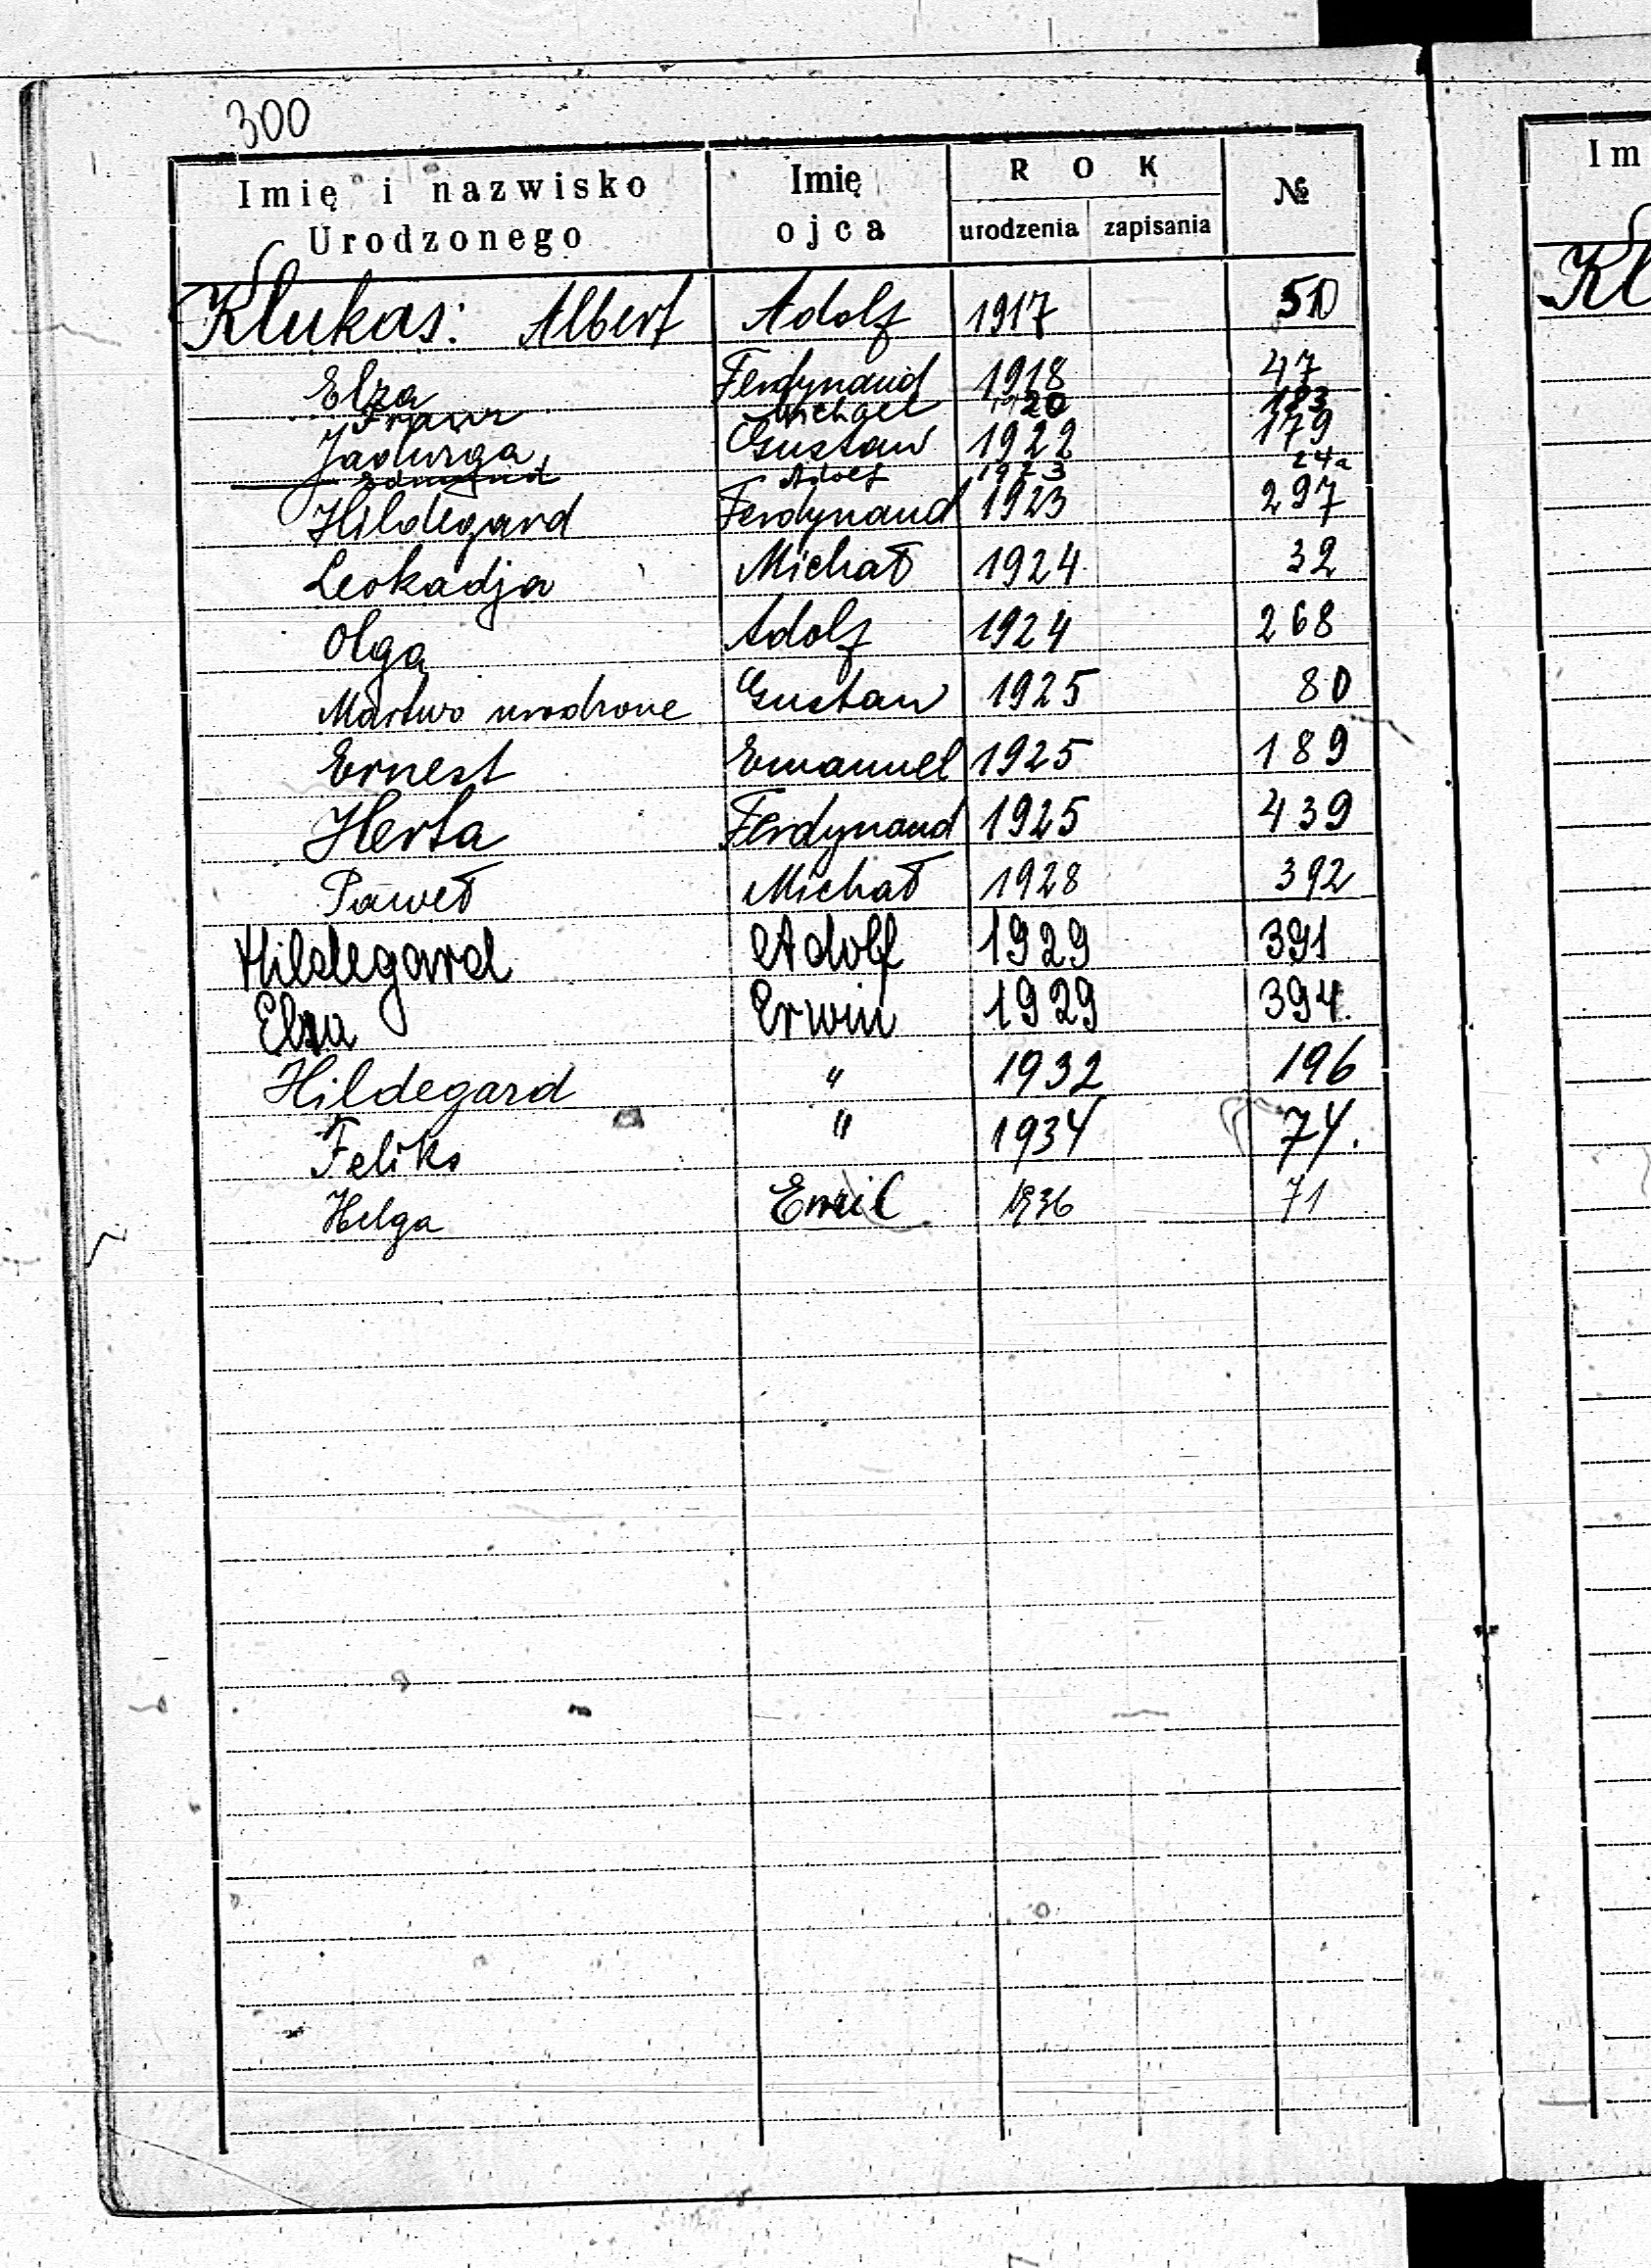 300
Imię i nazwisko Urodzonego Imię ojca ROK urodzenia zapisania №
Klukas: Albert Adolf 1917 510
Elza Ferdynand 1918 47
Franz Michael 1920 183
Jadwiga Gustaw 1922 179
Adolf 1923 24a
Hildegard Ferdynand 1923 297
Leokadja Michał 1924 32
Olga Adolf 1924 268
Martwo urodzone Gustaw 1925 80
Ernest Emanuel 1925 189
Herta Ferdynand 1925 439
Paweł Michał 1928 392
Hildegard Adolf 1929 391
Elza Erwin 1929 394.
Hildegard " 1932 196
Feliks " 1934 74.
Helga Emil 1936 71
Im
Kl